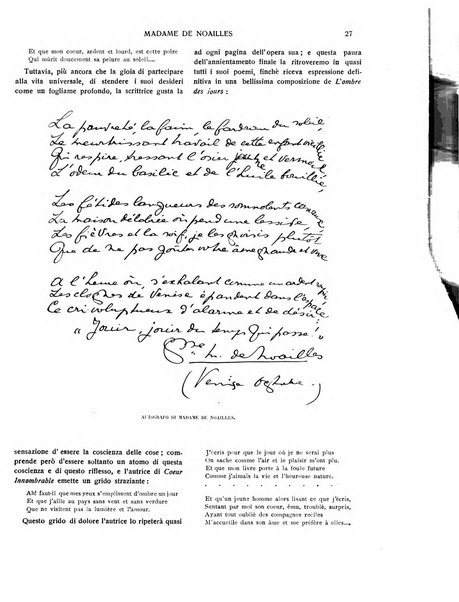 MADAME DE NOAILLES
27
Et que mon coeur, ardent et lourd, est cette poire
Qui mûrit doucement sa pelure au soleil....
Tuttavia, più ancora che la gioia di partecipare
alla vita universale, di stendere i suoi desideri
come un fogliame profondo, la scrittrice gusta la
ad ogni pagina dell'opera sua; e questa paura
dell'annientamento finale la ritroveremo in quasi
tutti i suoi poemi, finchè riceve espressione defi-
nitiva in una bellissima composizione de L'ombre
des jours:
La pauvreté, la faim, le fardeau du soleil,
Le meurtrissant travail de cette enfant vieillie
Qui respire, tressant l'osier jaune et vermeil,
L'odeur du basilic et de l'huile bouillie,
Les fétides langueurs des somnolents canaux,
La maison délabrée où pend une lessive,
Les fièvres et la soif, je les choisis plutôt
Que de ne pas goûter votre âme grande et vive
A l'heure où, s'exhalant comme un ardent
Les cloches de Venise épandent dans l'espace
Ce cri voluptueux d'alarme et de désir:
"Jouir, jouir du temps qui passe!"
Ctesse M. de Noailles
(Venise Octobre)
AUTOGRAFO DI MADAME DE NOAILLES.
sensazione d'essere la coscienza delle cose; com-
prende però d'essere soltanto un atomo di questa
coscienza e un riflesso, e l'autrice di Coeur
Innombrable emette un grido straziante:
Ah! faut-il que mes yeux s'emplissent d'ombre un jour
Et que j'aille au pays sans vent et sans verdure
Que ne visitent pas la lumière et l'amour!
Questo grido di dolore l'autrice lo ripeterà quasi
J'écris pour que le jour où je ne serai plus
On sache comme l'air et le plaisir m'ont plu
Et que mon livre porte à la foule future
Comme j'aimais la vie et l'heureuse nature.
. . . . . . . . . .
Et qu'un jeune homme alors lisant ce que j'écris,
Sentant par moi son coeur, ému, troublé, surpris,
Ayant tout oublié des compagnes réelles
M'accueille dans son âme et me préfère à elles...